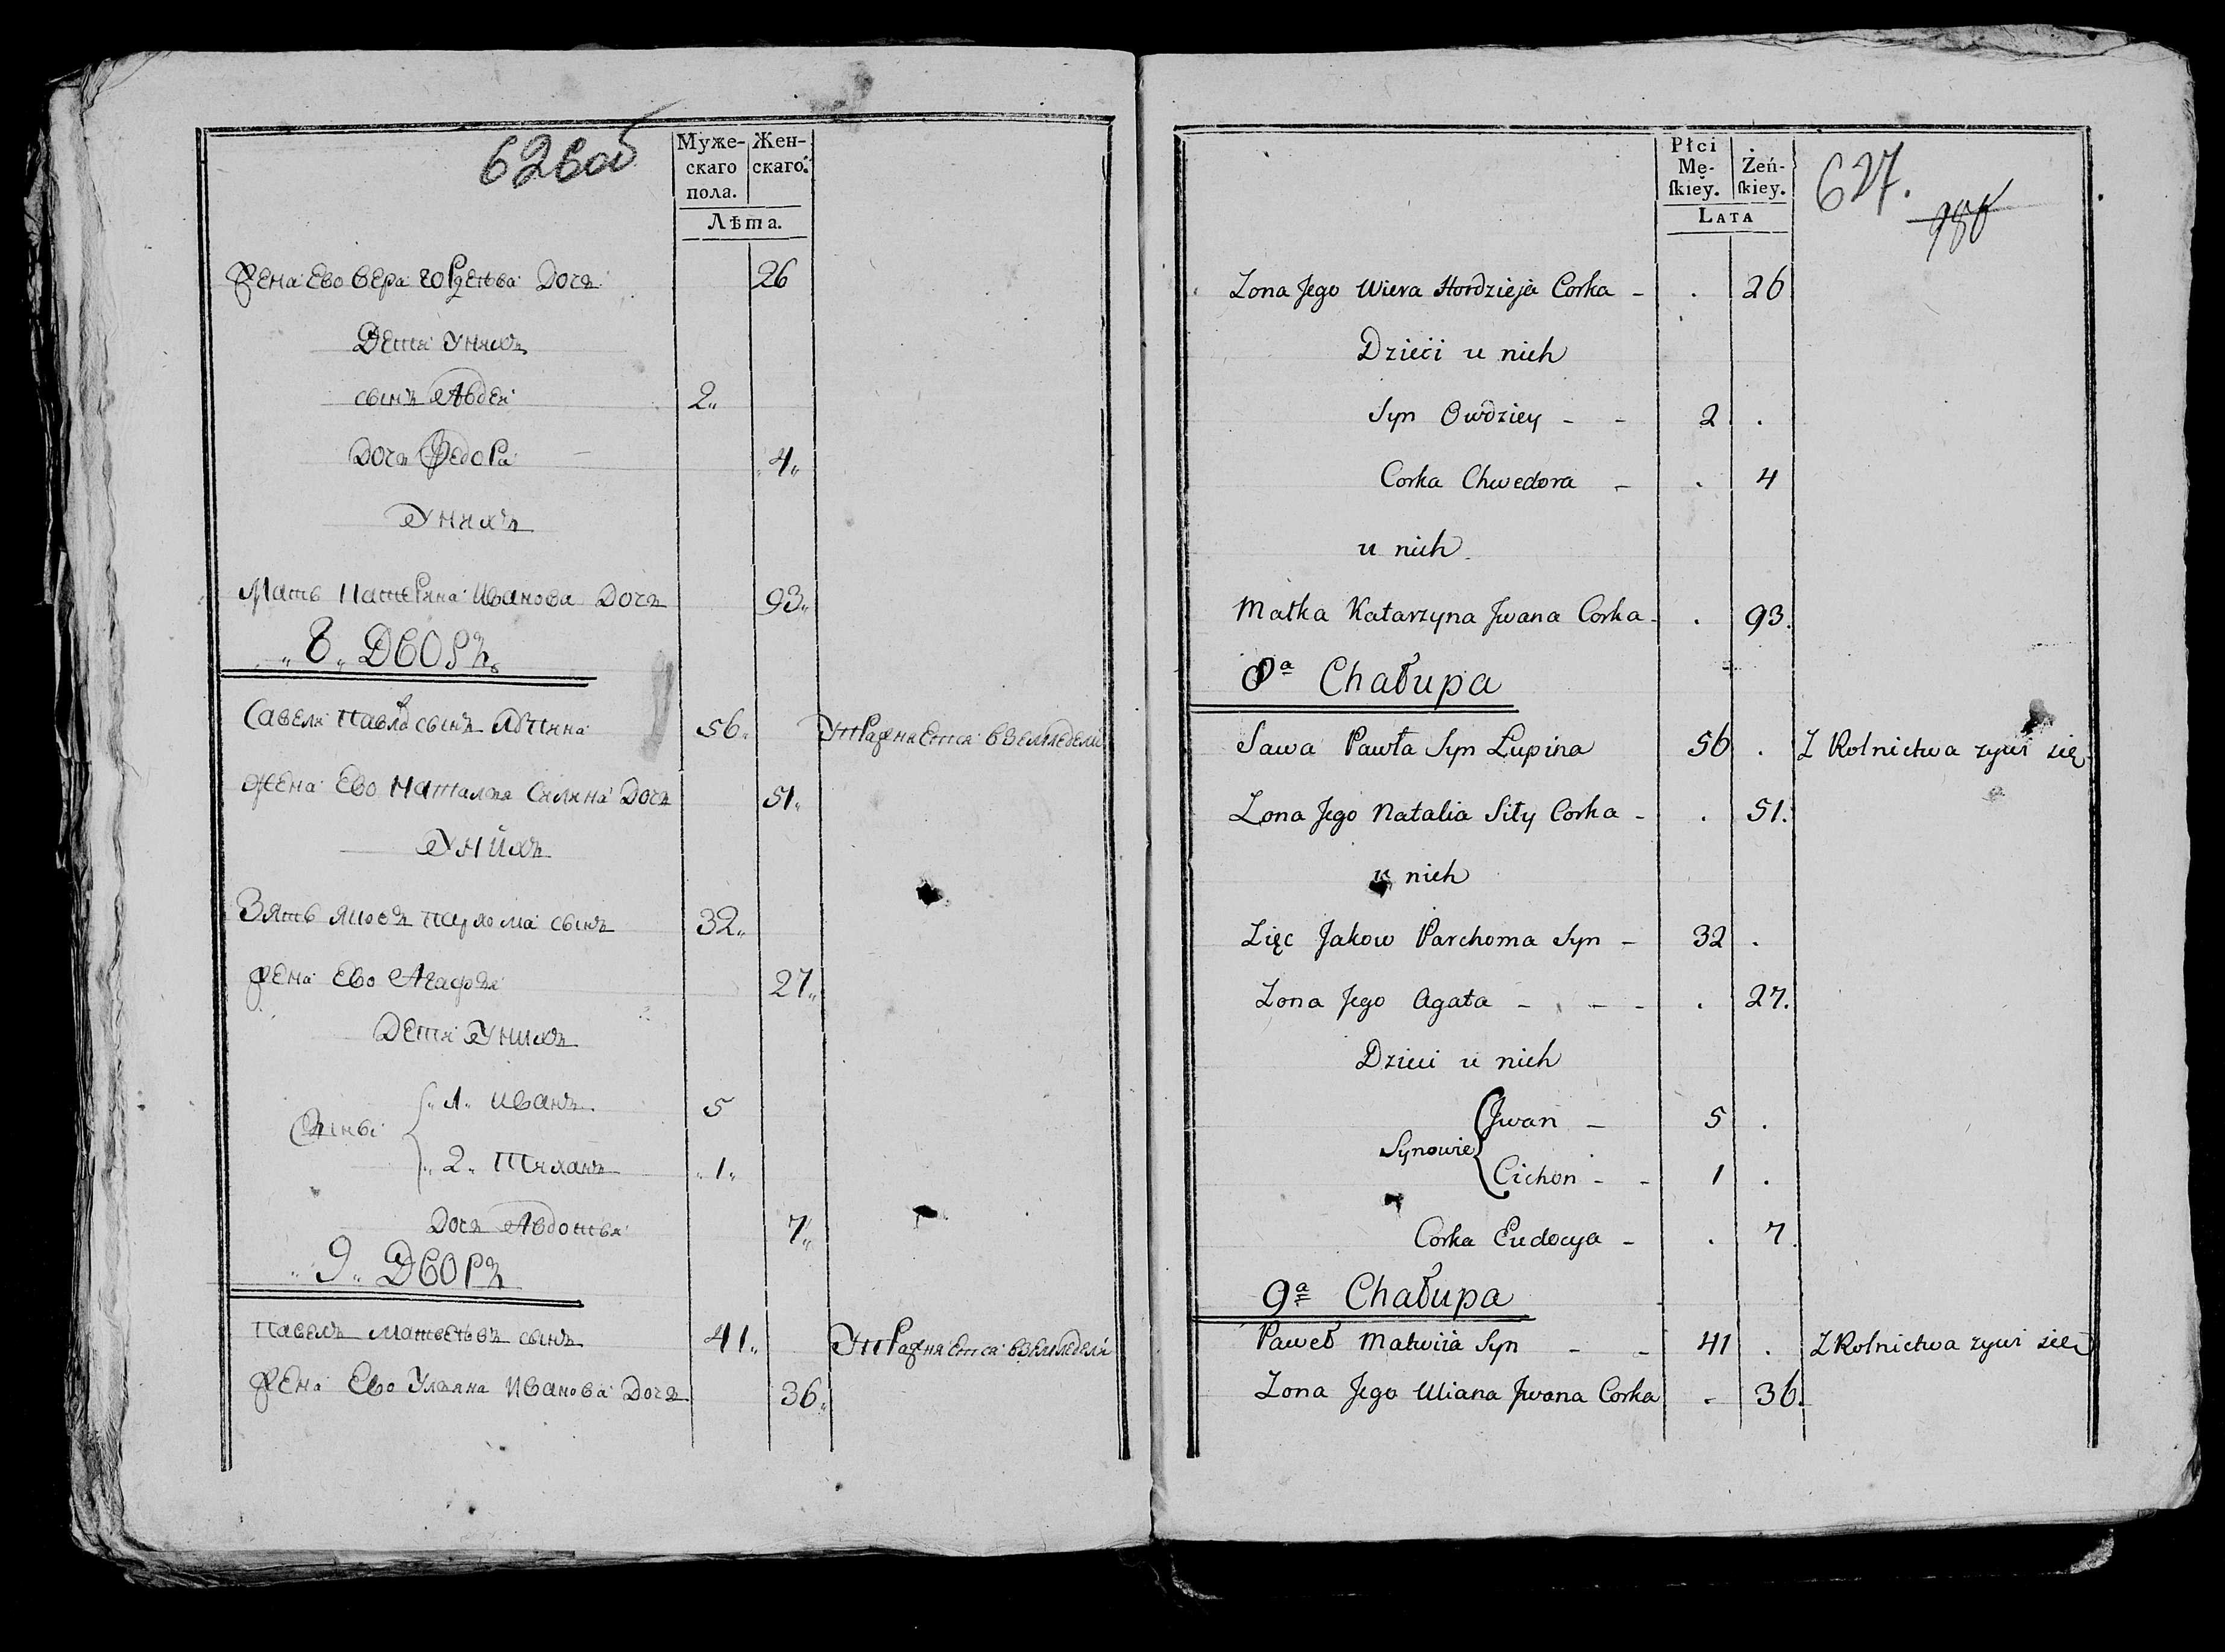 626об
Муже-
скаго
пола.
Жен-
скаго.
Лѣта.
жена Ево вера гордѣева Дочъ 26
Дети Унихъ
сынъ Авдеи 2
Дочъ Федора 4
Унихъ
Мать Катерина Иванова Дочъ 93
8 Дворъ
Савели Павла сынъ 56 Упражняетса вземледели
жена Ево Наталия Силина Дочъ 51
Унихъ
Зять яковъ сынъ 32
жена Ево Агафия 27
Дети Унихъ
1 иванъ 5
Сыны
2 Тиханъ 1
Дочъ Авдотья 7
9 Дворъ
Павелъ Матвеевъ сынъ 41 Упражняетса вземледели
жена Ево Ульяна Иванова Дочъ 36
Płci
Mę-
ſkiey.
Żeń-
ſkiey.
LATA
627.
Zona Jego Wiera Hordzieja Corka - . 26
Dzieci u nich
Syn Owdziey - - 2 .
Corka Chwedora - . 4
u nich
Matka Katarzyna Jwana Corka - . 93.
8ª Chałupa
Sawa Pawła Syn Łupina 56 . Z Rolnictwa zywi się
Zona Jego Natalia Siły Corka - . 51.
u nich
Zięc Jakow Parchoma Syn - 32 .
Zona Jego Agata - - - . 27.
Dzieci u nich
Jwan - 5 .
Synowie
Cichon - - 1 .
Corka Eudocya - . 7.
9ª Chałupa
Paweł Matwiia Syn - - 41 . Z Rolnictwa zywi się
Zona Jego Uliana Jwana Corka - 36.